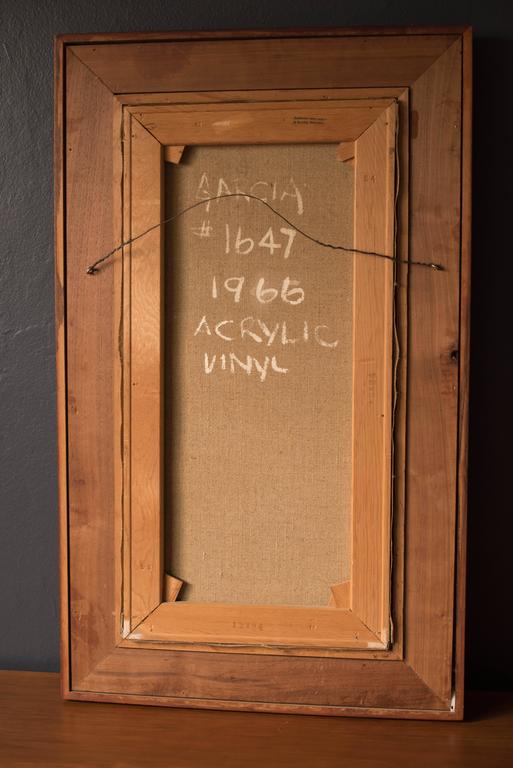 GARCIA
# 1647
1966
ACRYLIC
VINYL